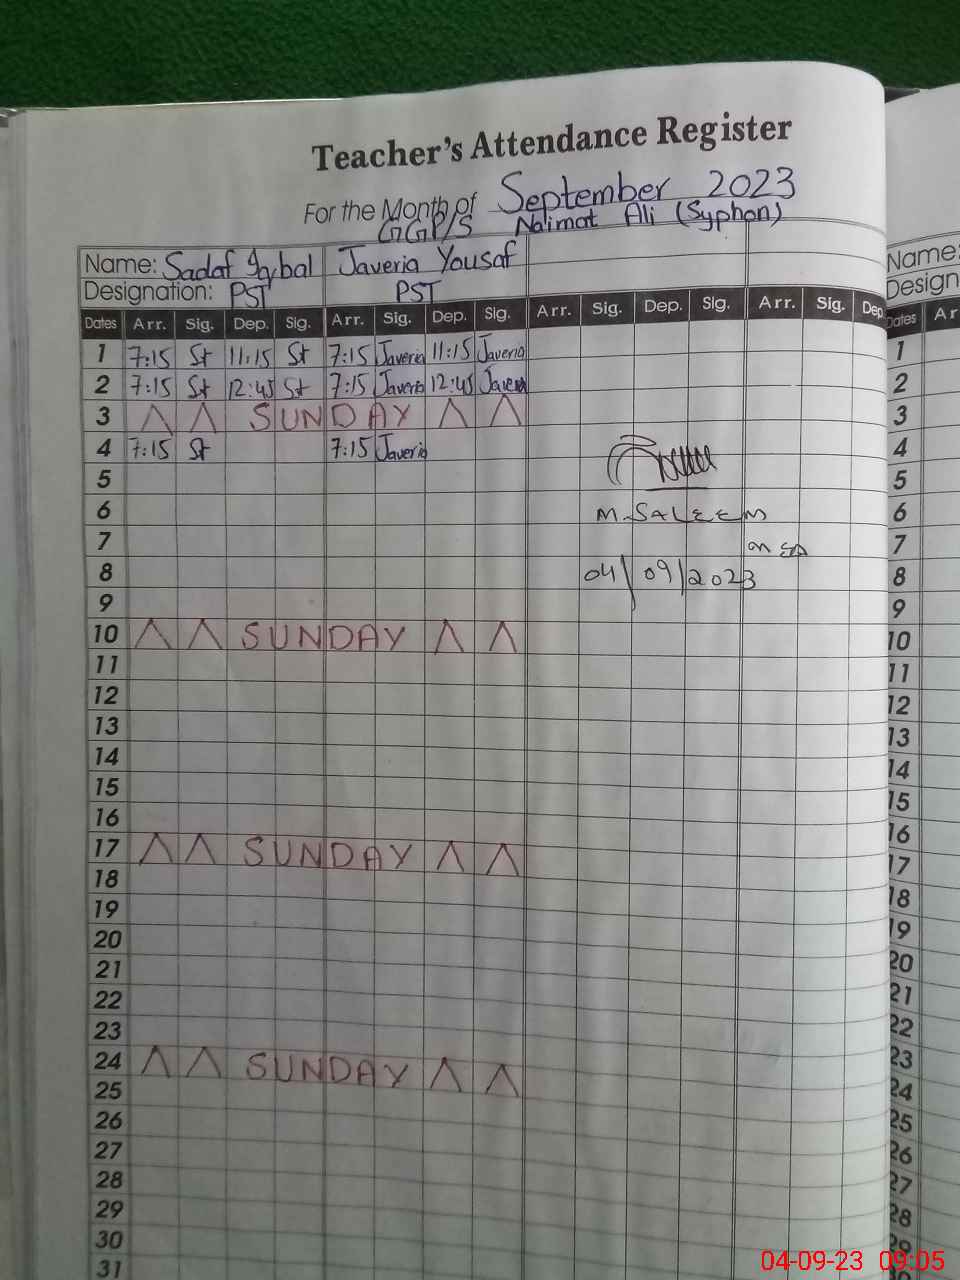 Teacher's Attendance Register
For the Month of September 2023
GGP/S Naimat Ali (Syphon)
Name: Sadaf Iqbal Javeria Yousaf
Designation: PST PST
Dates Arr. Sig. Dep. Sig. Arr. Sig. Dep. Sig. Arr. Sig. Dep. Sig. Arr. Sig. Dep
1 7:15 St 11:15 St 7:15 Javeria 11:15 Javeria
2 7:15 St 12:45 St 7:15 Javeria 12:45 Javeria
3 SUNDAY
4 7:15 St 7:15 Javeria
5
6 M. SALEEM
7
8 04/09/2023
9
10 SUNDAY
11
12
13
14
15
16
17 SUNDAY
18
19
20
21
22
23
24 SUNDAY
25
26
27
28
29
30
31
Name:
Design
Dates Ar
1
2
3
4
5
6
7
8
9
10
11
12
13
14
15
16
17
18
19
20
21
22
23
24
25
26
27
28
29
04-09-23 09:05